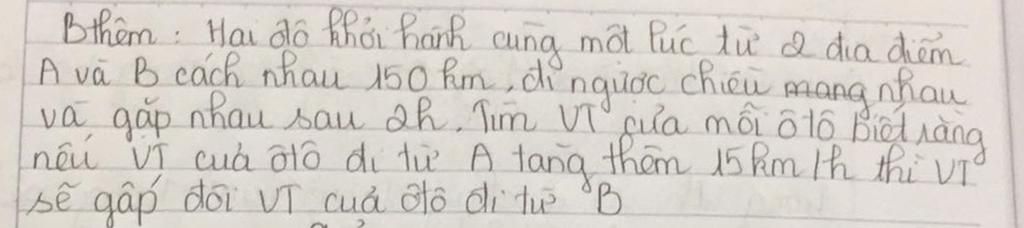 Bthêm: Hai ôtô khởi hành cùng một lúc từ 2 địa điểm
A và B cách nhau 150 km, đi ngược chiều nhau
và gặp nhau sau 2h. Tìm VT của mỗi ôtô biết rằng
nếu VT của ôtô đi từ A tăng thêm 15km/h thì VT
sẽ gấp đôi VT của ôtô đi từ B